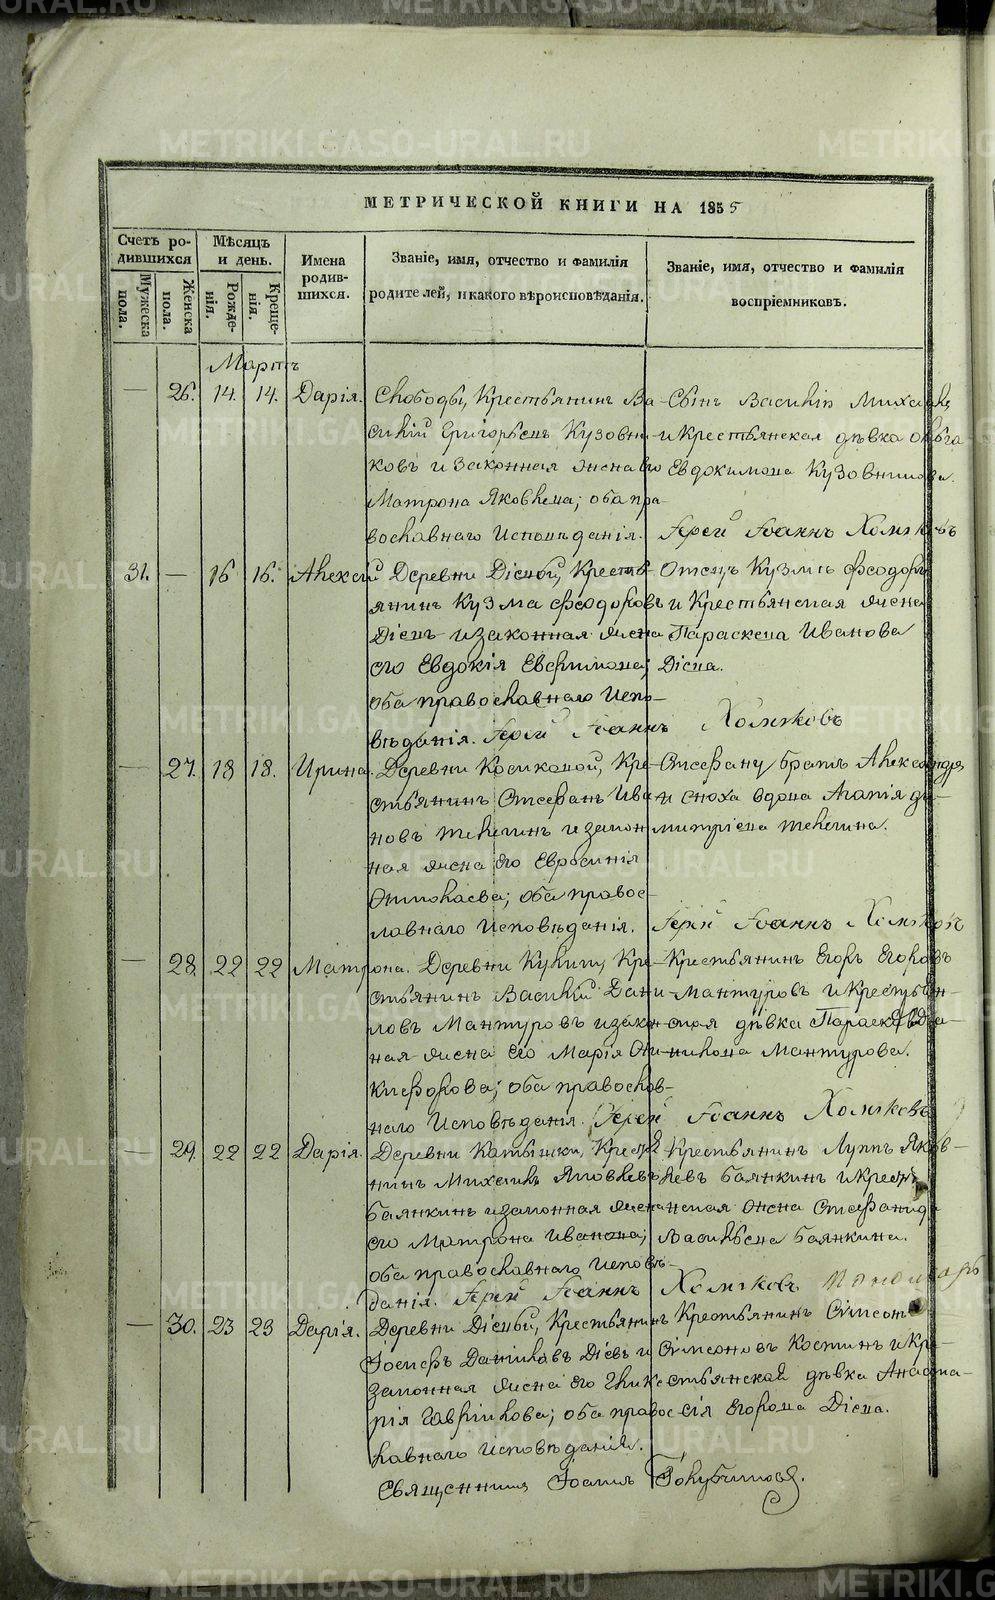 МЕТРИЧЕСКОЙ КНИГИ НА 1855
Счетъ ро-
дившихся
Мужеска
пола.
Женска
пола.
Мѣсяцъ
и день.
Рожде-
нія.
Креще-
нія.
Имена
родив-
шихся.
Званіе, имя, отчество и фамилія
родителей, и какого вѣроисповѣданія.
Званіе, имя, отчество и фамилія
воспріемниковъ.
Мартъ
— 26. 14. 14. Дарія. Слободы, Крестьянинъ Ва-
силій Григорьевъ Кузовни-
ковъ и законная жена его
Матрона Яковлева; оба пра-
вославнаго Исповѣданія.
Сынъ Василій
и Крестьянская дѣвка Ольга
Евдокимова Кузовникова.
Іерей Іоаннъ Хомяковъ
31. — 16 16. Алексій Деревни Діевой, Кресть-
янинъ Кузма Феодоровъ
Діевъ и законная жена
его Евдокія Евфимова;
оба православнаго Испо-
вѣданія.
Отецъ Кузмы Феодоръ
и Крестьянская жена
Параскева Иванова
Діева.
Іерей Іоаннъ Хомяковъ
— 27. 18 18. Ирина. Деревни Косиковой, Кре-
стьянинъ Стефанъ Ива-
новъ Телегинъ и закон-
ная жена его Евросинія
оба правос-
лавнаго Исповѣданія.
Стефану братъ Александръ
и сноха вдова Агапія Ди-
митріева Телегина.
Іерей Іоаннъ Хомяковъ
— 28. 22 22 Матрона. Деревни Кулиги, Кре-
стьянинъ Василій Дани-
ловъ Мантуровъ и закон-
ная жена его Марія
Никифорова; оба православ-
наго Исповѣданія.
Крестьянинъ Егоръ Егоровъ
Мантуровъ и Крестьян-
ская дѣвка Параскева
Мантурова.
Іерей Іоаннъ Хомяковъ
— 29. 22 22 Дарія. Деревни Катышки, Крестья-
нинъ Михаилъ Яковлевъ
Баянкинъ и законная жена
его Матрона Иванова;
оба православнаго Исповѣ-
данія.
Крестьянинъ Луппъ Яков-
левъ Баянкинъ и Крестья-
нская жена Стефанида
Васильева Баянкина.
Іерей Іоаннъ Хомяковъ
— 30. 23 23 Дарія. Деревни Діевой, Крестьянинъ
Іосифъ Даниловъ Діевъ и
законная жена его Глике-
рія Гаврилова; оба правос-
лавнаго Исповѣданія.
Крестьянинъ Симеонъ
Симеоновъ Костинъ и Кре-
стьянская дѣвка Анаста-
сія Егорова Діева.
Священникъ Іоаннъ